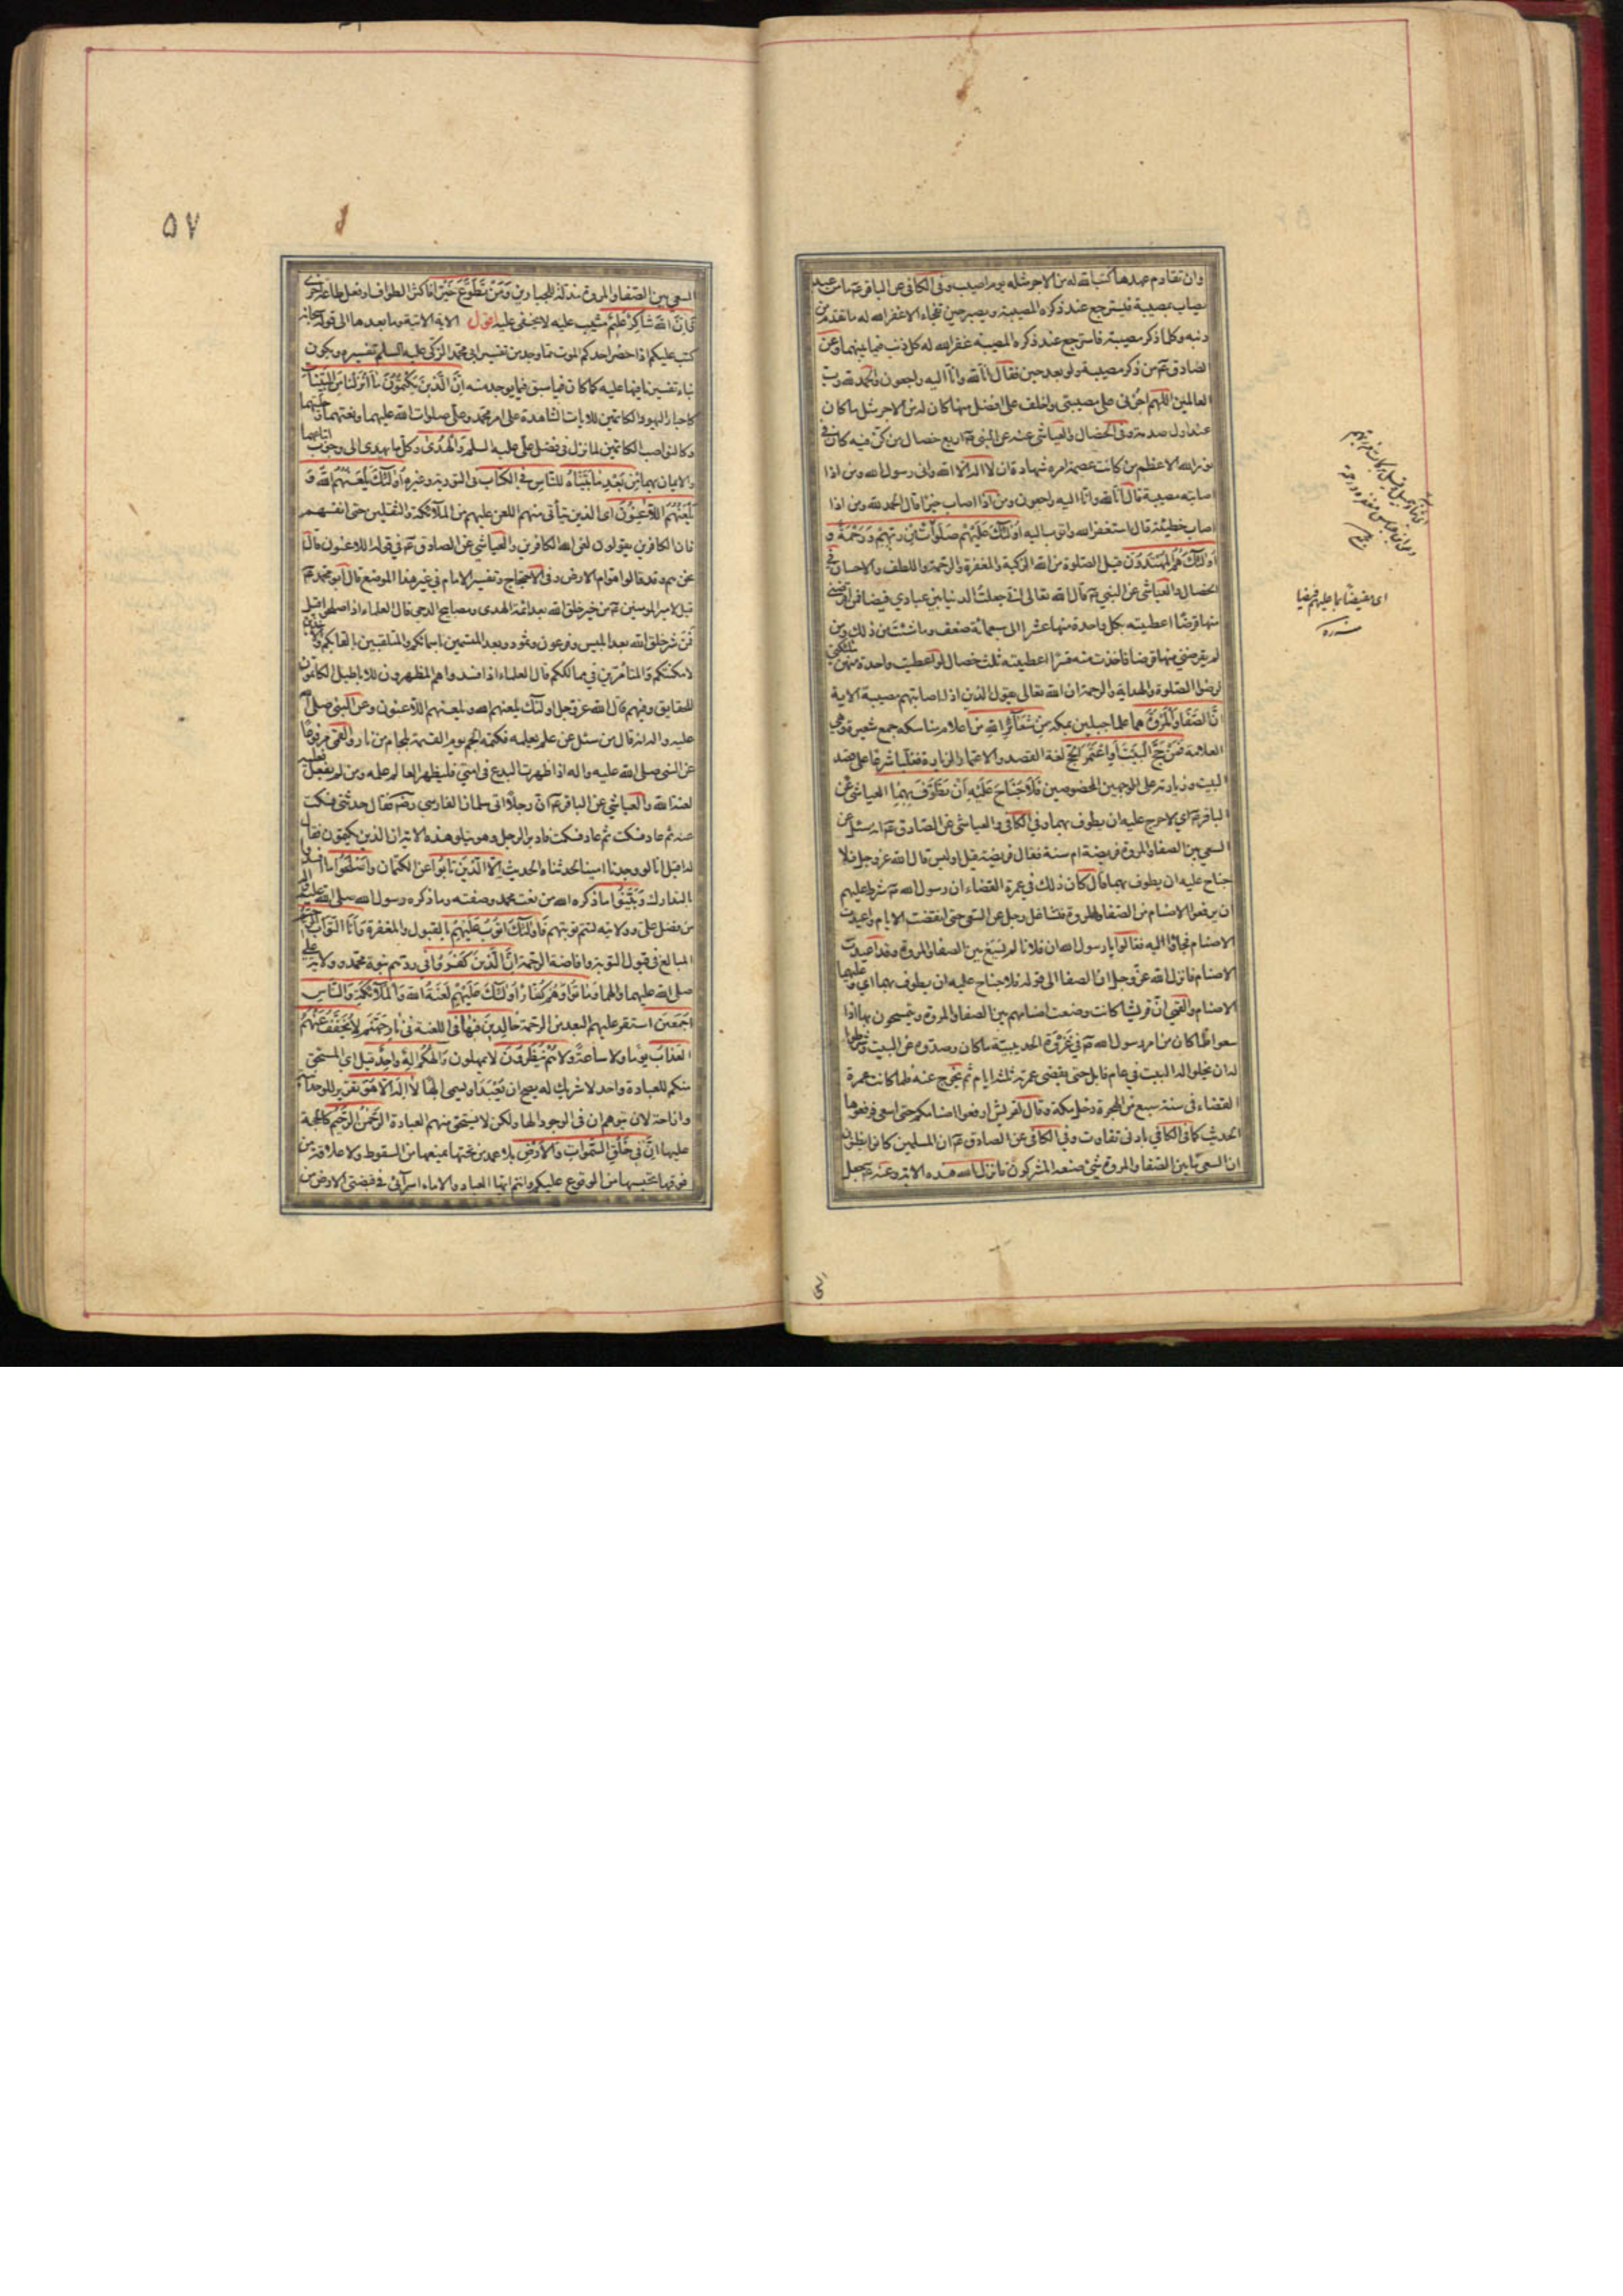 وان تقادم عهدها كتب الله له من الاجر مثله يوم اصيب وفى الكافى عن الباقر ما من عبد
يصاب بمصيبة فيسترجع عند ذكره المصيبة ويصبر حين تفجاه الا غفر الله له ما تقدم من
ذنبه وكلما ذكر مصيبة فاسترجع عند ذكره المصيبة غفر الله له كل ذنب فيما بينهما وعن
الصادق ع من ذكر مصيبة ولو بعد حين فقال انا لله وانا اليه راجعون والحمد لله رب
العالمين اللهم اجرنى على مصيبتى واخلف على افضل منها كان له من الاجر مثل ما كان
عند اول صدمة وفى الخصال والعياشى عنه عن النبى اربع خصال من كن فيه كان فى
نور الله الاعظم من كانت عصمة امره شهادة ان لا اله الا الله وانى رسول الله ومن اذا
اصابته مصيبة قال انا لله وانا اليه راجعون ومن اذا اصاب خيرا قال الحمد لله ومن اذا
اصاب خطيئة قال استغفر الله واتوب اليه اولئك عليهم صلوات من ربهم ورحمة و
اولئك هم المهتدون قيل الصلوة من الله التزكية والمغفرة والرحمة واللطف والاحسان فى
الخصال والعياشى عن النبى قال الله تعالى انى جعلت الدنيا بين عبادى فيضا فمن اقرضنى
منها قرضا اعطيته بكل واحدة منها عشرا الى سبعمائة ضعف وما شئت من ذلك ومن
لم يقرضنى منها قرضا فاخذت منه قسرا اعطيته ثلث خصال لو اعطيت واحدة منهن ملائكتى
لرضوا الصلوة والهداية والرحمة ان الله تعالى يقول الذين اذا اصابتهم مصيبة الاية
ان الصفا والمروة هما علما جبلين بمكة من شعائر الله من اعلام مناسكه جمع شعيرة وهى
العلامة فمن حج البيت او اعتمر الحج لغة القصد والاعتمار الزيارة فغلبا شرعا على قصد
البيت وزيارته على الوجهين المخصوصين فلا جناح عليه ان يطوف بهما العياشى عن
الباقر اى لا حرج عليه ان يطوف بهما وفى الكافى والعياشى عن الصادق انه سئل عن
السعى بين الصفا والمروة فريضة ام سنة فقال فريضة قيل اوليس قال الله عز وجل فلا
جناح عليه ان يطوف بهما قال كان ذلك فى عمرة القضاء ان رسول الله شرط عليهم
ان يرفعوا الاصنام من الصفا والمروة فتشاغل رجل عن السعى حتى انقضت الايام واعيدت
الاصنام فجاؤا اليه فقالوا يا رسول الله ان فلانا لم يسع بين الصفا والمروة وقد اعيدت
الاصنام فانزل الله عز وجل ان الصفا الى قوله فلا جناح عليه ان يطوف بهما اى وعليهما
الاصنام والقمى ان قريشا كانت وضعت اصنامهم بين الصفا والمروة ويتمسحون بها اذا
سعوا فلما كان من امر رسول الله فى غزوة الحديبية ما كان وصدوه عن البيت وشرطوا
له ان يخلوا له البيت فى عام قابل حتى يقضى عمرته ثلثة ايام ثم يخرج عنه فلما كانت عمرة
القضاء فى سنة سبع من الهجرة دخل مكة وقال لقريش ارفعوا اصنامكم حتى اسعى فرفعوها
الحديث كما فى الكافى بادنى تفاوت وفى الكافى عن الصادق ان المسلمين كانوا يظنون
ان السعى ما بين الصفا والمروة شئ صنعه المشركون فانزل الله هذه الاية وعنه جعل
اى مفيضا بما عليهم فرضيا
الى
٥٧
السعى بين الصفا والمروة مذلة للجبارين ومن تطوع خيرا فاكثر الطواف او فعل طاعة اخرى
فان الله شاكر عليم مثيب عليه لا يخفى عليه اقول الاية الاتية وما بعدها الى قوله سبحانه
كتب عليكم اذا حضر احدكم الموت مما وجد من تفسير ابى محمد الزكى عليه السلم تفسيره ويكون
بناء تفسيرنا فيها عليه كما كان فيما سبق فيما يوجد منه ان الذين يكتمون ما انزلنا من البينات
كاحبار اليهود الكاتمين للايات الشاهدة على امر محمد وعلى صلوات الله عليهما ونعتهما وحليتهما
وكالنواصب الكاتمين لما نزل فى فضل على عليه السلم والهدى وكل ما يهدى الى وجوب اتباعهما
والايمان بهما من بعد ما بيناه للناس فى الكتاب فى التورية وغيره اولئك يلعنهم الله و
يلعنهم اللاعنون اى الذين يتأتى منهم اللعن عليهم من الملائكة والثقلين حتى انفسهم
فان الكافرين يقولون لعن الله الكافرين والعياشى عن الصادق فى قوله اللاعنون قال
نحن هم وقد قالوا هوام الارض وفى الاحتجاج وتفسير الامام فى غير هذا الموضع قال ابو محمد
قيل لامير المومنين من خير خلق الله بعد ائمة الهدى ومصابيح الدجى قال العلماء اذا صلحوا قيل
فمن شر خلق الله بعد ابليس وفرعون وثمود وبعد المتسمين باسمائكم والمتلقبين بالقابكم والاخذين
لامكنتكم والمتامرين فى ممالككم قال العلماء اذا فسدوا هم المظهرون للاباطيل الكاتمون
للحقايق وفيهم قال الله عز وجل اولئك يلعنهم الله ويلعنهم اللاعنون وعن النبى صلى الله
عليه واله انه قال من سئل عن علم يعلمه فكتمه الجم يوم القيمة بلجام من نار والقمى مرفوعا
عن النبى صلى الله عليه واله اذا ظهرت البدع فى امتى فليظهر العالم علمه ومن لم يفعل فعليه
لعنة الله والعياشى عن الباقر ان رجلا اتى سلمان الفارسى رض فقال حدثنى فسكت
عنه ثم عاد فسكت ثم عاد فسكت فادبر الرجل وهو يتلو هذه الاية ان الذين يكتمون فقال
له اقبل انا لو وجدنا امينا لحدثناه الحديث الا الذين تابوا عن الكتمان واصلحوا ما افسدوا
بالتدارك وبينوا ما ذكره الله من نعت محمد وصفته وما ذكره رسول الله صلى الله عليه واله
من فضل على وولايته لتتم توبتهم فاولئك اتوب عليهم بالقبول والمغفرة وانا التواب الرحيم
المبالغ فى قبول التوبة وافاضة الرحمة ان الذين كفروا فى ردهم نبوة محمد وولاية على
صلى الله عليهما والهما وماتوا وهم كفار اولئك عليهم لعنة الله والملائكة والناس
اجمعين استقر عليهم البعد من الرحمة خالدين فيها فى اللعنة فى نار جهنم لا يخفف عنهم
العذاب يوما ولا ساعة ولا هم ينظرون لا يمهلون والهكم اله واحد قيل اى المستحق
منكم للعبادة واحد لا شريك له يصح ان يعبد او يسمى الها لا اله الا هو تقرير للوحدانية
وازاحة لان يتوهم ان فى الوجود الها ولكن لا يستحق منهم العبادة الرحمن الرحيم كالحجة
عليها ان فى خلق السموات والارض بلا عمد من تحتها يمنعها من السقوط ولا علاقة من
فوقها تحبسها من الوقوع عليكم وانتم ايها العباد والاماء اسرائى فى قبضتى الارض من